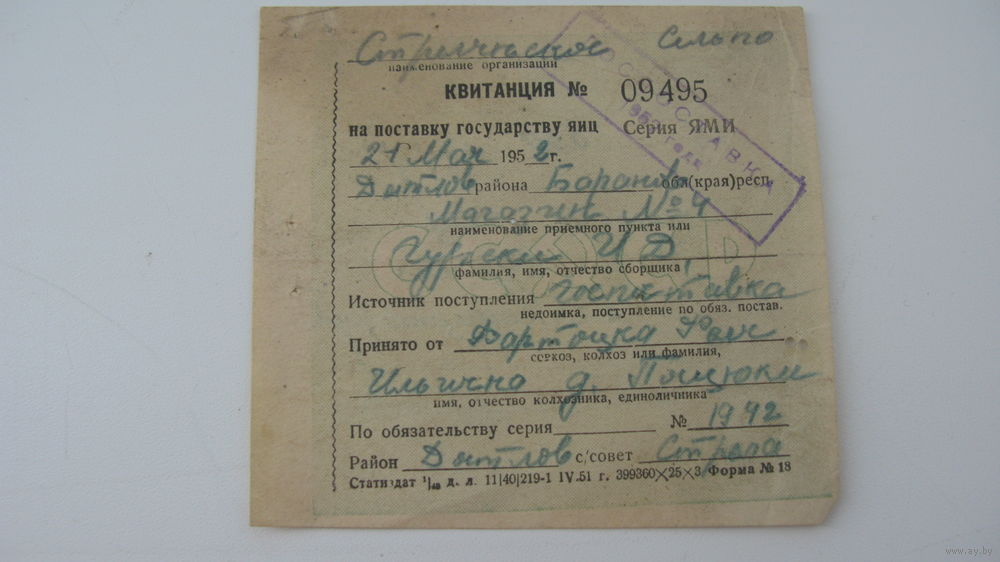 Сельпо
наименование организации
КВИТАНЦИЯ № 09495
на поставку государству яиц Серия ЯМИ
21 Мая 1952 г.
Дятлов района Баранов обл(края)респ.
Магазин № 4
наименование приемного пункта или
И Д
фамилия, имя, отчество сборщика
Источник поступления госпоставка
недоимка, поступление по обяз. постав.
Принято от
совхоз, колхоз или фамилия,
д.
имя, отчество колхозника, единоличника
По обязательству серия № 1942
Район Дятлов с/совет
Статиздат 1/48 д. л. 11|40|219-1 IV.51 г. 399360×25×3 Форма № 18
www.ay.by